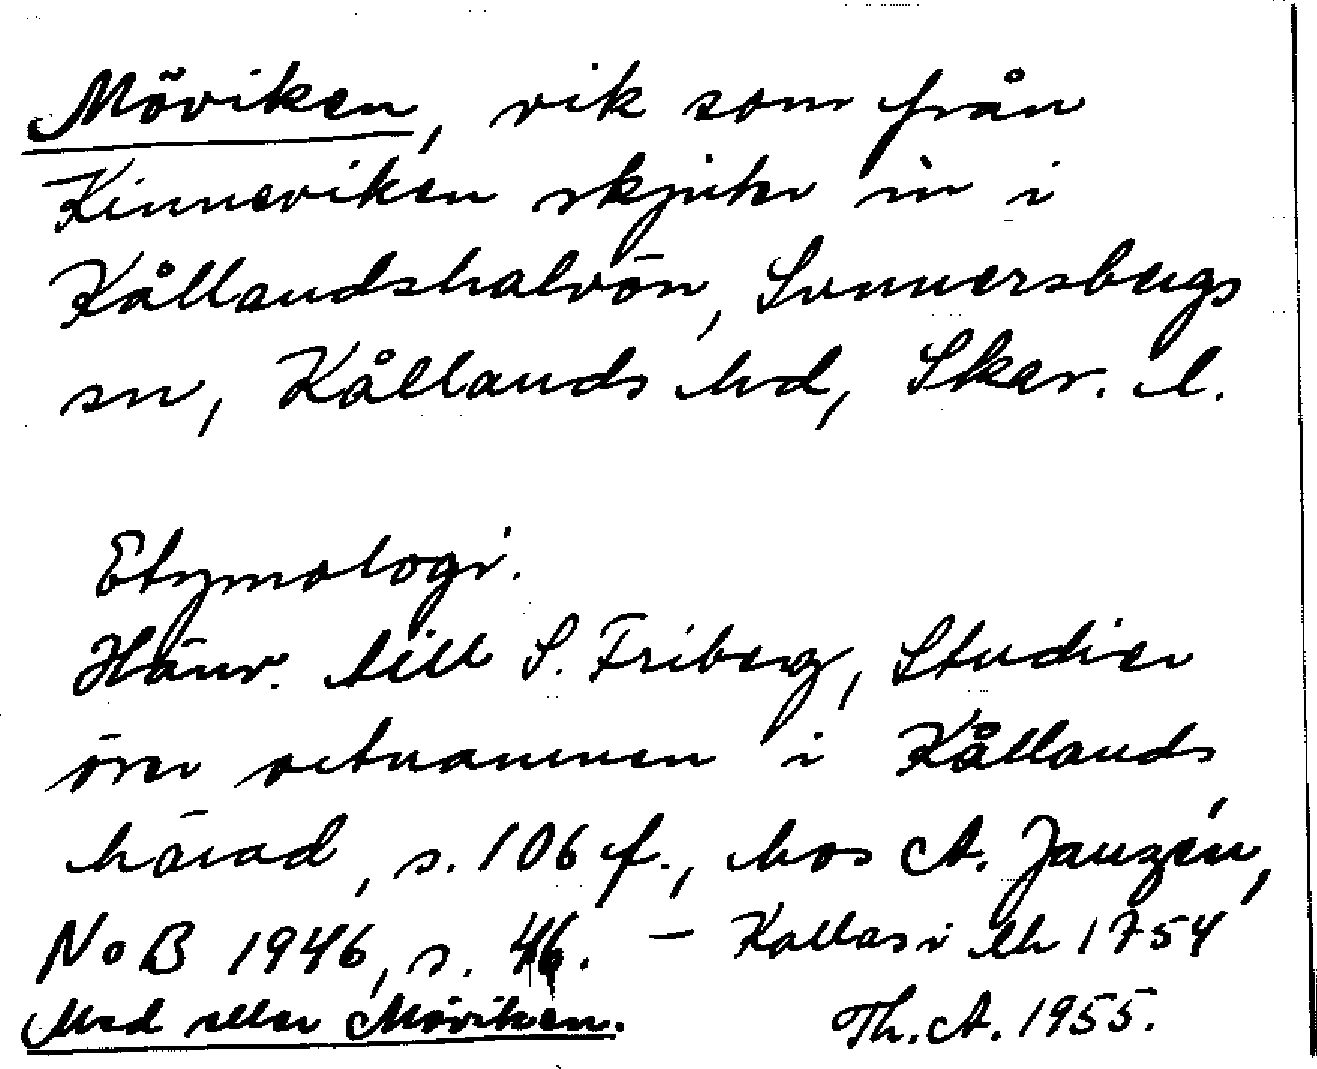 Möviken, vik som från
Kinneviken skjuter in i
Kållandshalvön, Sunnersbergs
sn, Kållands hd, Skar. l.
Etymologi.
Hänv. till S. Friberg, Studier
över ortnamnen i Kållands
härad, s. 106 f., hos A. Janzén,
NoB 1946, s. 46. – Kallas i lh 1754
Mad eller Möviken. Th. A. 1955.